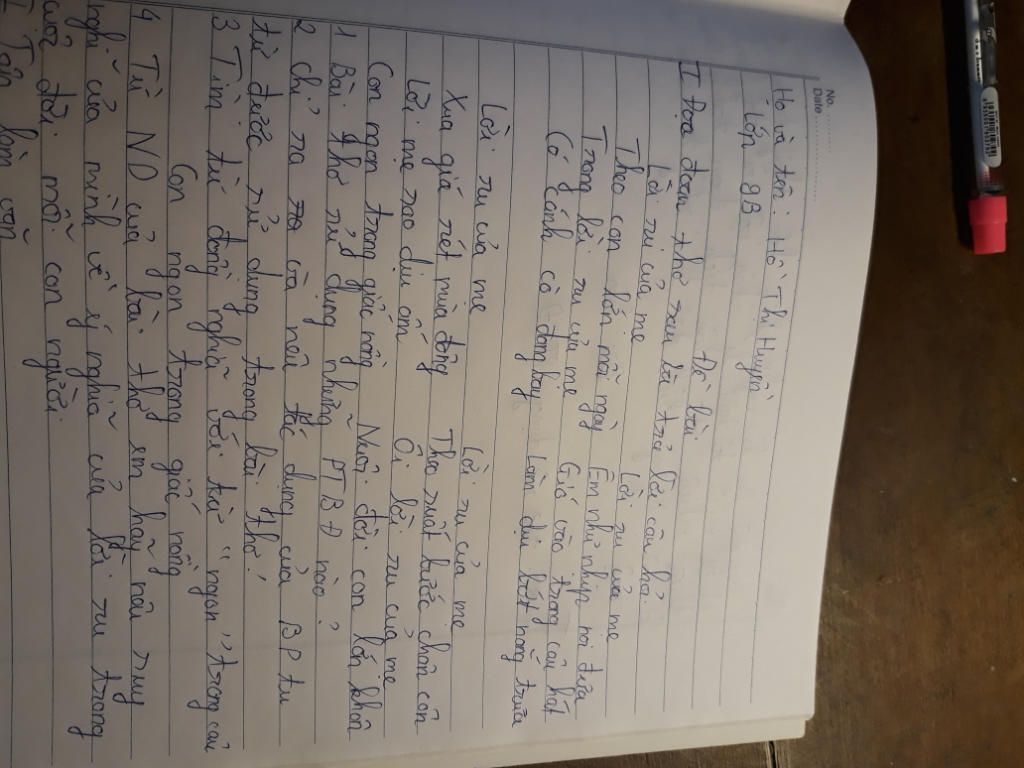 No.
Date
Họ và tên: Hồ Thị Huyền
Lớp 9B
Đề bài
I Đọa đoạn thơ sau và trả lời câu hỏi
Lời ru của mẹ Lời ru của mẹ
Theo con lớn mỗi ngày Êm như nhịp nôi đưa
Trong lời ru của mẹ Gió vào trong câu hát
Có cánh cò đang bay Làm dịu bớt nắng trưa
Lời ru của mẹ Lời ru của mẹ
Xua giá rét mùa đông Theo suốt bước chân con
Lời mẹ sao dịu ấm Ôi lời ru của mẹ
Con ngon trong giấc nồng Nuôi đời con lớn khôn
1 Bài thơ sử dụng những PTBĐ nào?
2 chỉ ra và nêu tác dụng của BP tu
từ được sử dụng trong bài thơ.
3 Tìm từ đồng nghĩa với từ "ngon" trong câu
Con ngon trong giấc nồng
4 Từ ND của bài thơ em hãy nêu suy
nghĩ của mình về ý nghĩa của lời ru trong
cuộc đời mỗi con người.
II Tập làm văn